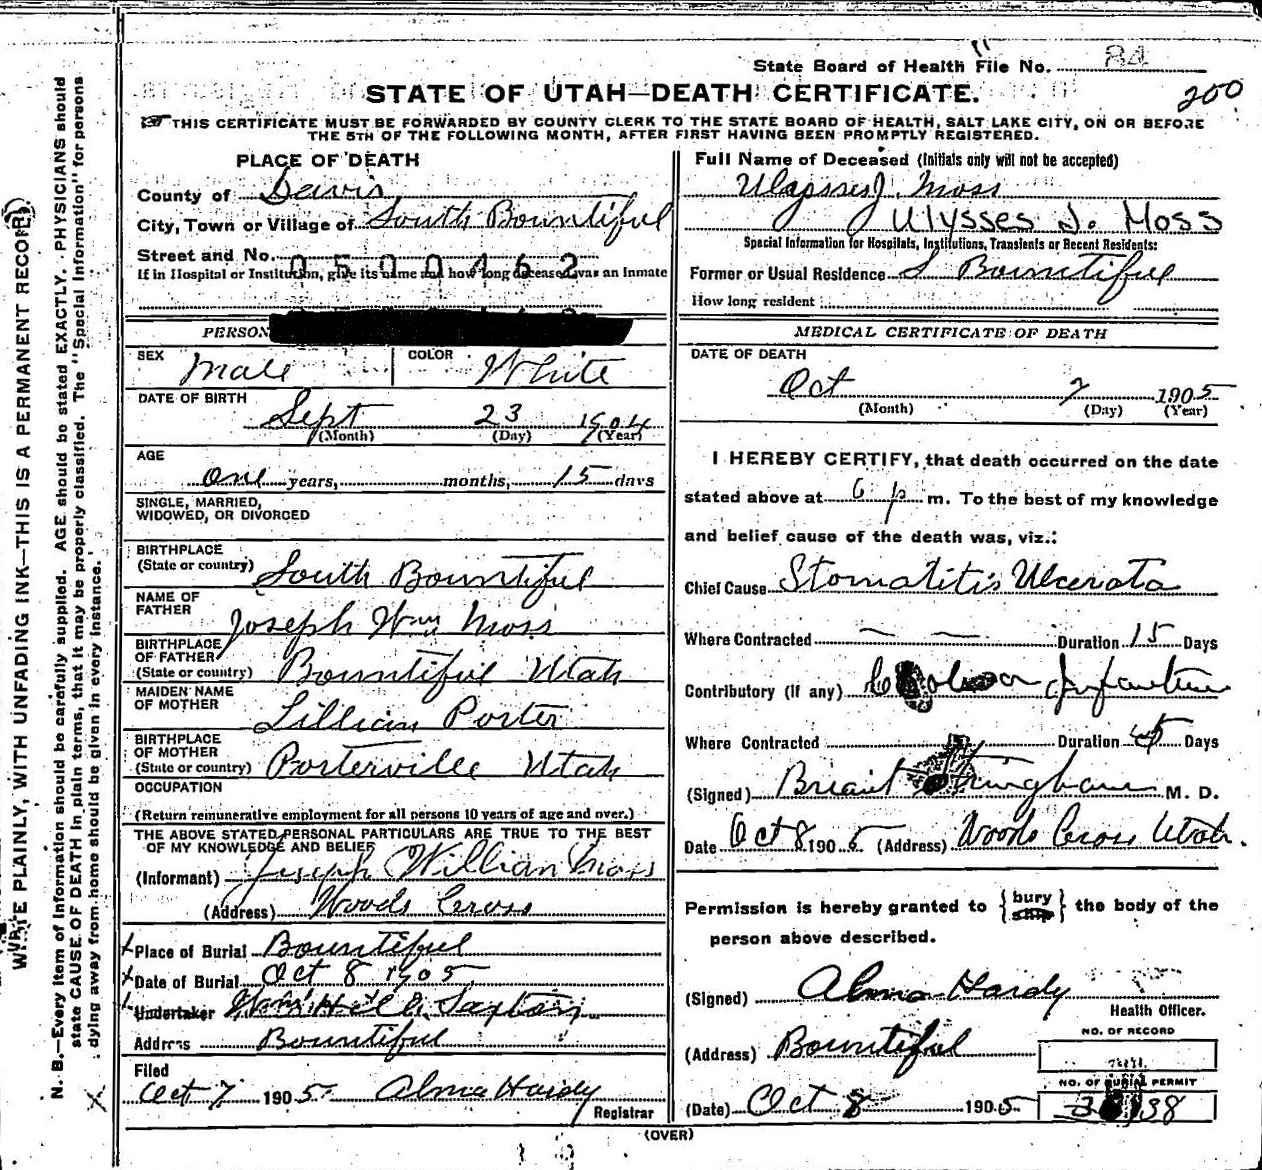 State Board of Health File No. 84
200
STATE OF UTAH—DEATH CERTIFICATE.
THIS CERTIFICATE MUST BE FORWARDED BY COUNTY CLERK TO THE STATE BOARD OF HEALTH, SALT LAKE CITY, ON OR BEFORE
THE 5TH OF THE FOLLOWING MONTH, AFTER FIRST HAVING BEEN PROMPTLY REGISTERED.
WRITE PLAINLY, WITH UNFADING INK—THIS IS A PERMANENT RECORD
N. B.—Every item of information should be carefully supplied. AGE should be stated EXACTLY. PHYSICIANS should
state CAUSE OF DEATH in plain terms, that it may be properly classified. The "Special Information" for persons
dying away from home should be given in every instance.
X
PLACE OF DEATH
County of Davis
City, Town or Village of South Bountiful
Street and No.
0500462
If in Hospital or Institution, give its name and how long deceased was an Inmate
PERSON
SEX Male COLOR White
DATE OF BIRTH
Sept 23 1904
(Month) (Day) (Year)
AGE
one years, months, 15 days
SINGLE, MARRIED,
WIDOWED, OR DIVORCED
BIRTHPLACE
(State or country) South Bountiful
NAME OF
FATHER Joseph Wm Moss
BIRTHPLACE
OF FATHER
(State or country) Bountiful Utah
MAIDEN NAME
OF MOTHER Lillian Porter
BIRTHPLACE
OF MOTHER
(State or country) Porterville Utah
OCCUPATION
(Return remunerative employment for all persons 10 years of age and over.)
THE ABOVE STATED PERSONAL PARTICULARS ARE TRUE TO THE BEST
OF MY KNOWLEDGE AND BELIEF
(Informant) Joseph William Moss
(Address) Woods Cross
Place of Burial Bountiful
Date of Burial Oct 8 1905
Undertaker Sexton
Address Bountiful
Filed
Oct 7 1905 Alma Hardy
Registrar
Full Name of Deceased (Initials only will not be accepted)
Ulyssses J. Moss
Ulysses J. Moss
Special Information for Hospitals, Institutions, Transients or Recent Residents:
Former or Usual Residence S Bountiful
How long resident
MEDICAL CERTIFICATE OF DEATH
DATE OF DEATH
Oct 7 1905
(Month) (Day) (Year)
I HEREBY CERTIFY, that death occurred on the date
stated above at 6 p m. To the best of my knowledge
and belief cause of the death was, viz.:
Chief Cause Stomatitis Ulcerata
Where Contracted — — Duration 15 Days
Contributory (If any) Infantum
Where Contracted Duration Days
(Signed) Briant Stringham M. D.
Date Oct 8 1905 (Address) Woods Cross Utah.
Permission is hereby granted to {bury} the body of the
person above described.
(Signed) Alma Hardy
Health Officer.
(Address) Bountiful
NO. OF RECORD
NO. OF BURIAL PERMIT
(Date) Oct 8 1905 38
(OVER)